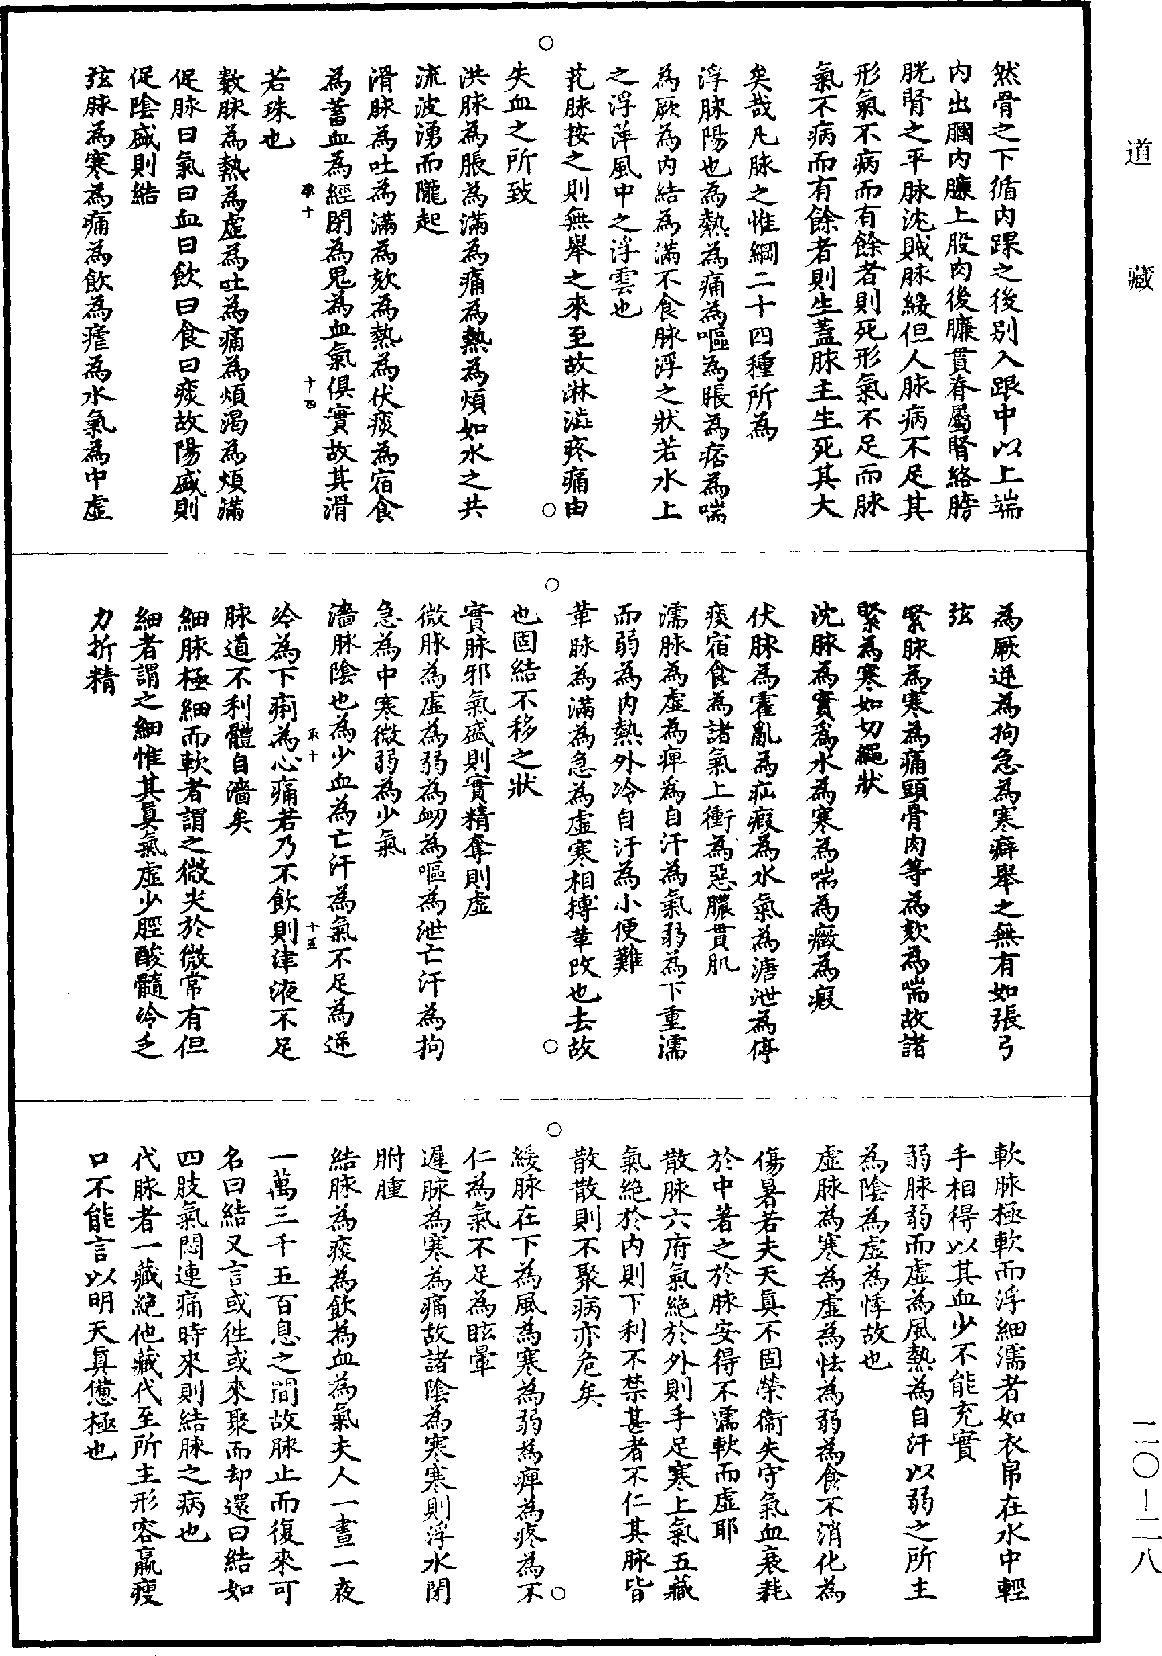 道藏
然骨之下循内踝之後別入跟中以上端
内出膕内臁上股肉後臁貫脊屬腎絡膀
胱腎之平脉沈賊脉緩但人脉病不足其
形氣不病而有餘者則死形氣不足而脉
氣不病而有餘者則生蓋脉主生死其大
矣哉凡脉之惟綱二十四種所為
浮脉陽也為熱為痛為嘔為脹為痞為喘
為厥為内結為滿不食脉浮之狀若水上
之浮萍風中之浮雲也
芤脉按之則無舉之來至故淋澁疼痛由
失血之所致
洪脉為脹為滿為痛為熱為煩如水之共
流波湧而隴起
滑脉為吐為滿為欬為熱為伏痰為宿食
為蓄血為經閉為鬼為血氣俱實故其滑
承十 十四
若珠也
數脉為熱為虛為吐為痛為煩渴為煩滿
促脉曰氣曰血曰飲曰食曰痰故陽盛則
促陰盛則結
弦脉為寒為痛為飲為瘧為水氣為中虛
為厥逆為拘急為寒癖舉之無有如張弓
弦
緊脉為寒為痛頭骨肉等為欬為喘故諸
緊為寒如切繩狀
沈脉為實為水為寒為喘為癥為瘕
伏脉為霍亂為疝瘕為水氣為溏泄為停
痰宿食為諸氣上衝為惡膿貫肌
濡脉為虛為痺為自汗為氣弱為下重濡
而弱為内熱外冷自汗為小便難
革脉為滿為急為虛寒相摶革改也去故
也固結不移之狀
實脉邪氣盛則實精奪則虛
微脉為虛為弱為衂為嘔為泄亡汗為拘
急為中寒微弱為少氣
濇脉陰也為少血為亡汗為氣不足為逆
承十 十五
冷為下痢為心痛若乃不飲則津液不足
脉道不利體自濇矣
細脉極細而軟者謂之微尖於微常有但
細者謂之細惟其眞氣虛少脛酸髓冷乏
力折精
軟脉極軟而浮細濡者如衣帛在水中輕
手相得以其血少不能充實
弱脉弱而虛為風熱為自汗以弱之所主
為陰為虛為悸故也
虛脉為寒為虛為怯為弱為食不消化為
傷暑若夫天真不固榮衞失守氣血衰耗
於中著之於脉安得不濡軟而虛耶
散脉六府氣絶於外則手足寒上氣五藏
氣絶於内則下利不禁甚者不仁其脉皆
散散則不聚病亦危矣
緩脉在下為風為寒為弱為痺為疼為不
仁為氣不足為眩暈
遲脉為寒為痛故諸陰為寒寒則浮水閉
胕腫
結脉為痰為飲為血為氣夫人一晝一夜
一萬三千五百息之間故脉止而復來可
名曰結又言或徃或來聚而却還曰結如
四肢氣悶連痛時來則結脉之病也
代脉者一藏絶他藏代至所主形容羸瘦
口不能言以明天眞憊極也
二〇—二八